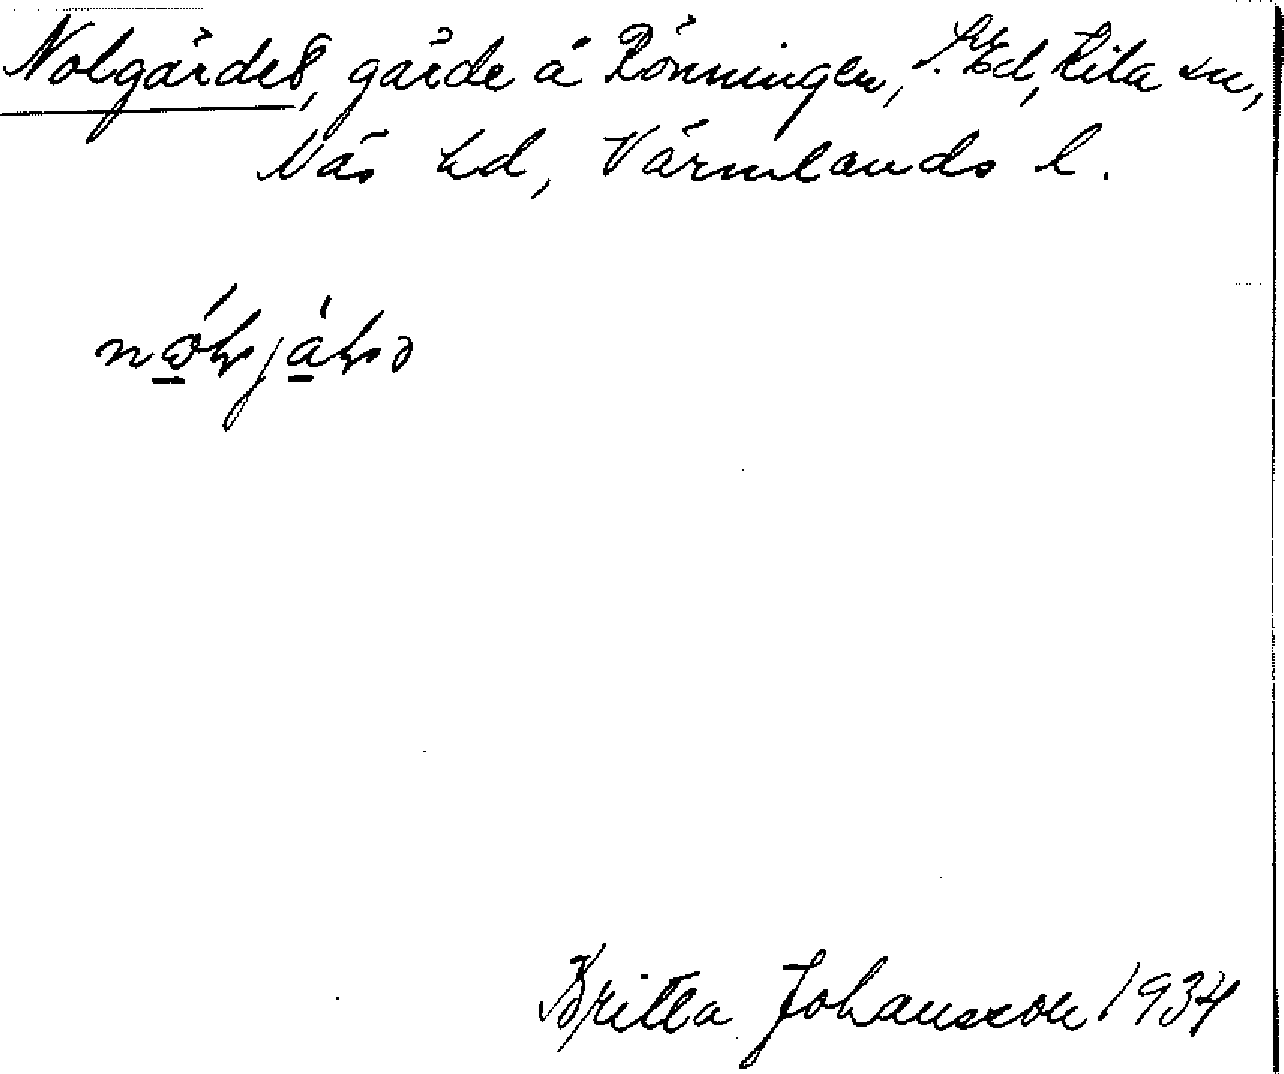 Nolgärdet, gärde å Rönningen, S. Ed, Kila sn,
Näs hd, Värmlands l.
Britta Johansson 1934